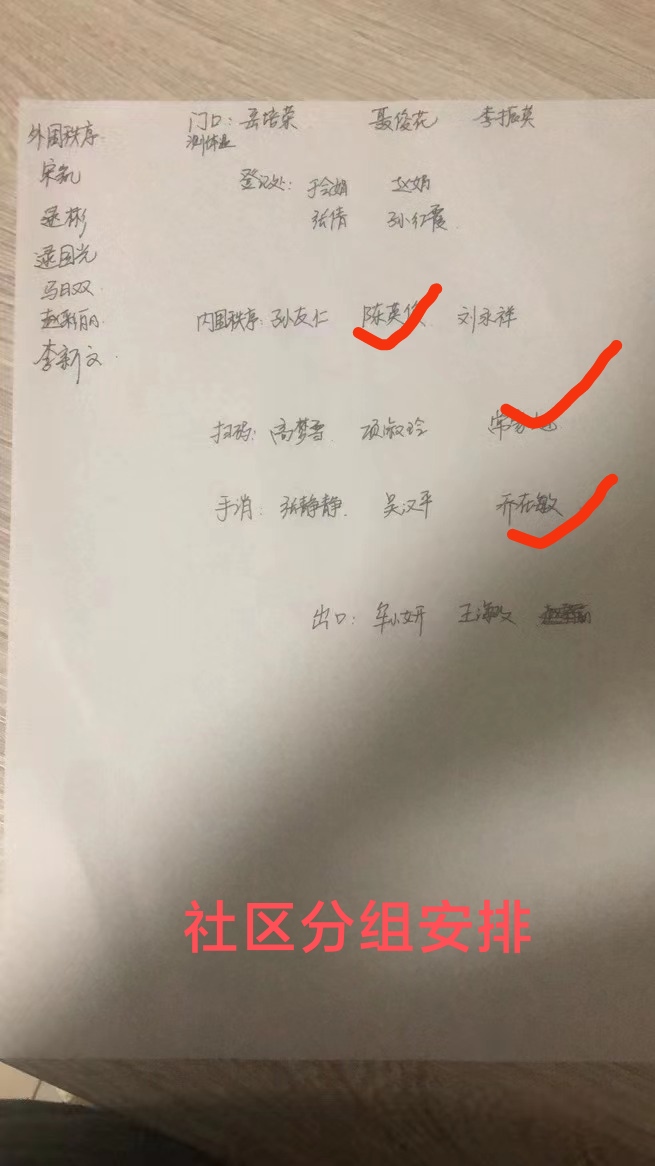 外围秩序
宋凯
逯彬
逯国光
马日双
赵彩丽
李新文
门口：岳培荣 聂俊花 李振英
测体温
登记处：于会娟 赵娟
张倩 孙红霞
内围秩序：孙友仁 陈英俊 刘永祥
扫码：高梦雪 项淑玲
手消：张静静 吴汉平 乔在敏
出口：牟小妍 王海文
社区分组安排